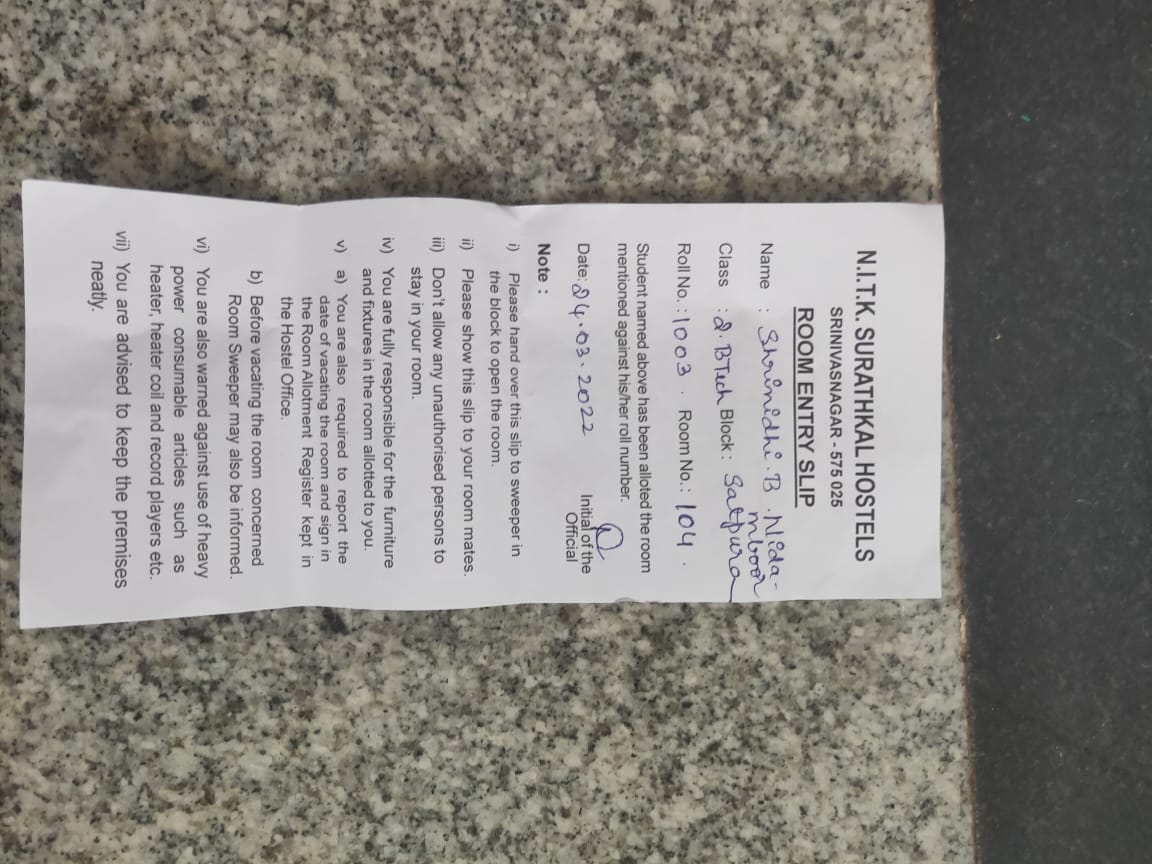 N.I.T.K. SURATHKAL HOSTELS
SRINIVASNAGAR - 575 025
ROOM ENTRY SLIP
Name : Shrinidhi. B. Nida-
mboor
Class : 2. BTech Block : Satpura
Roll No. : 1003. Room No. : 104.
Student named above has been alloted the room
mentioned against his/her roll number.
Date: 24.03.2022 Initial of the
Official
Note :
i) Please hand over this slip to sweeper in
the block to open the room.
ii) Please show this slip to your room mates.
iii) Don't allow any unauthorised persons to
stay in your room.
iv) You are fully responsible for the furniture
and fixtures in the room allotted to you.
v) a) You are also required to report the
date of vacating the room and sign in
the Room Allotment Register kept in
the Hostel Office.
b) Before vacating the room concerned
Room Sweeper may also be informed.
vi) You are also warned against use of heavy
power consumable articles such as
heater, heater coil and record players etc.
vii) You are advised to keep the premises
neatly.